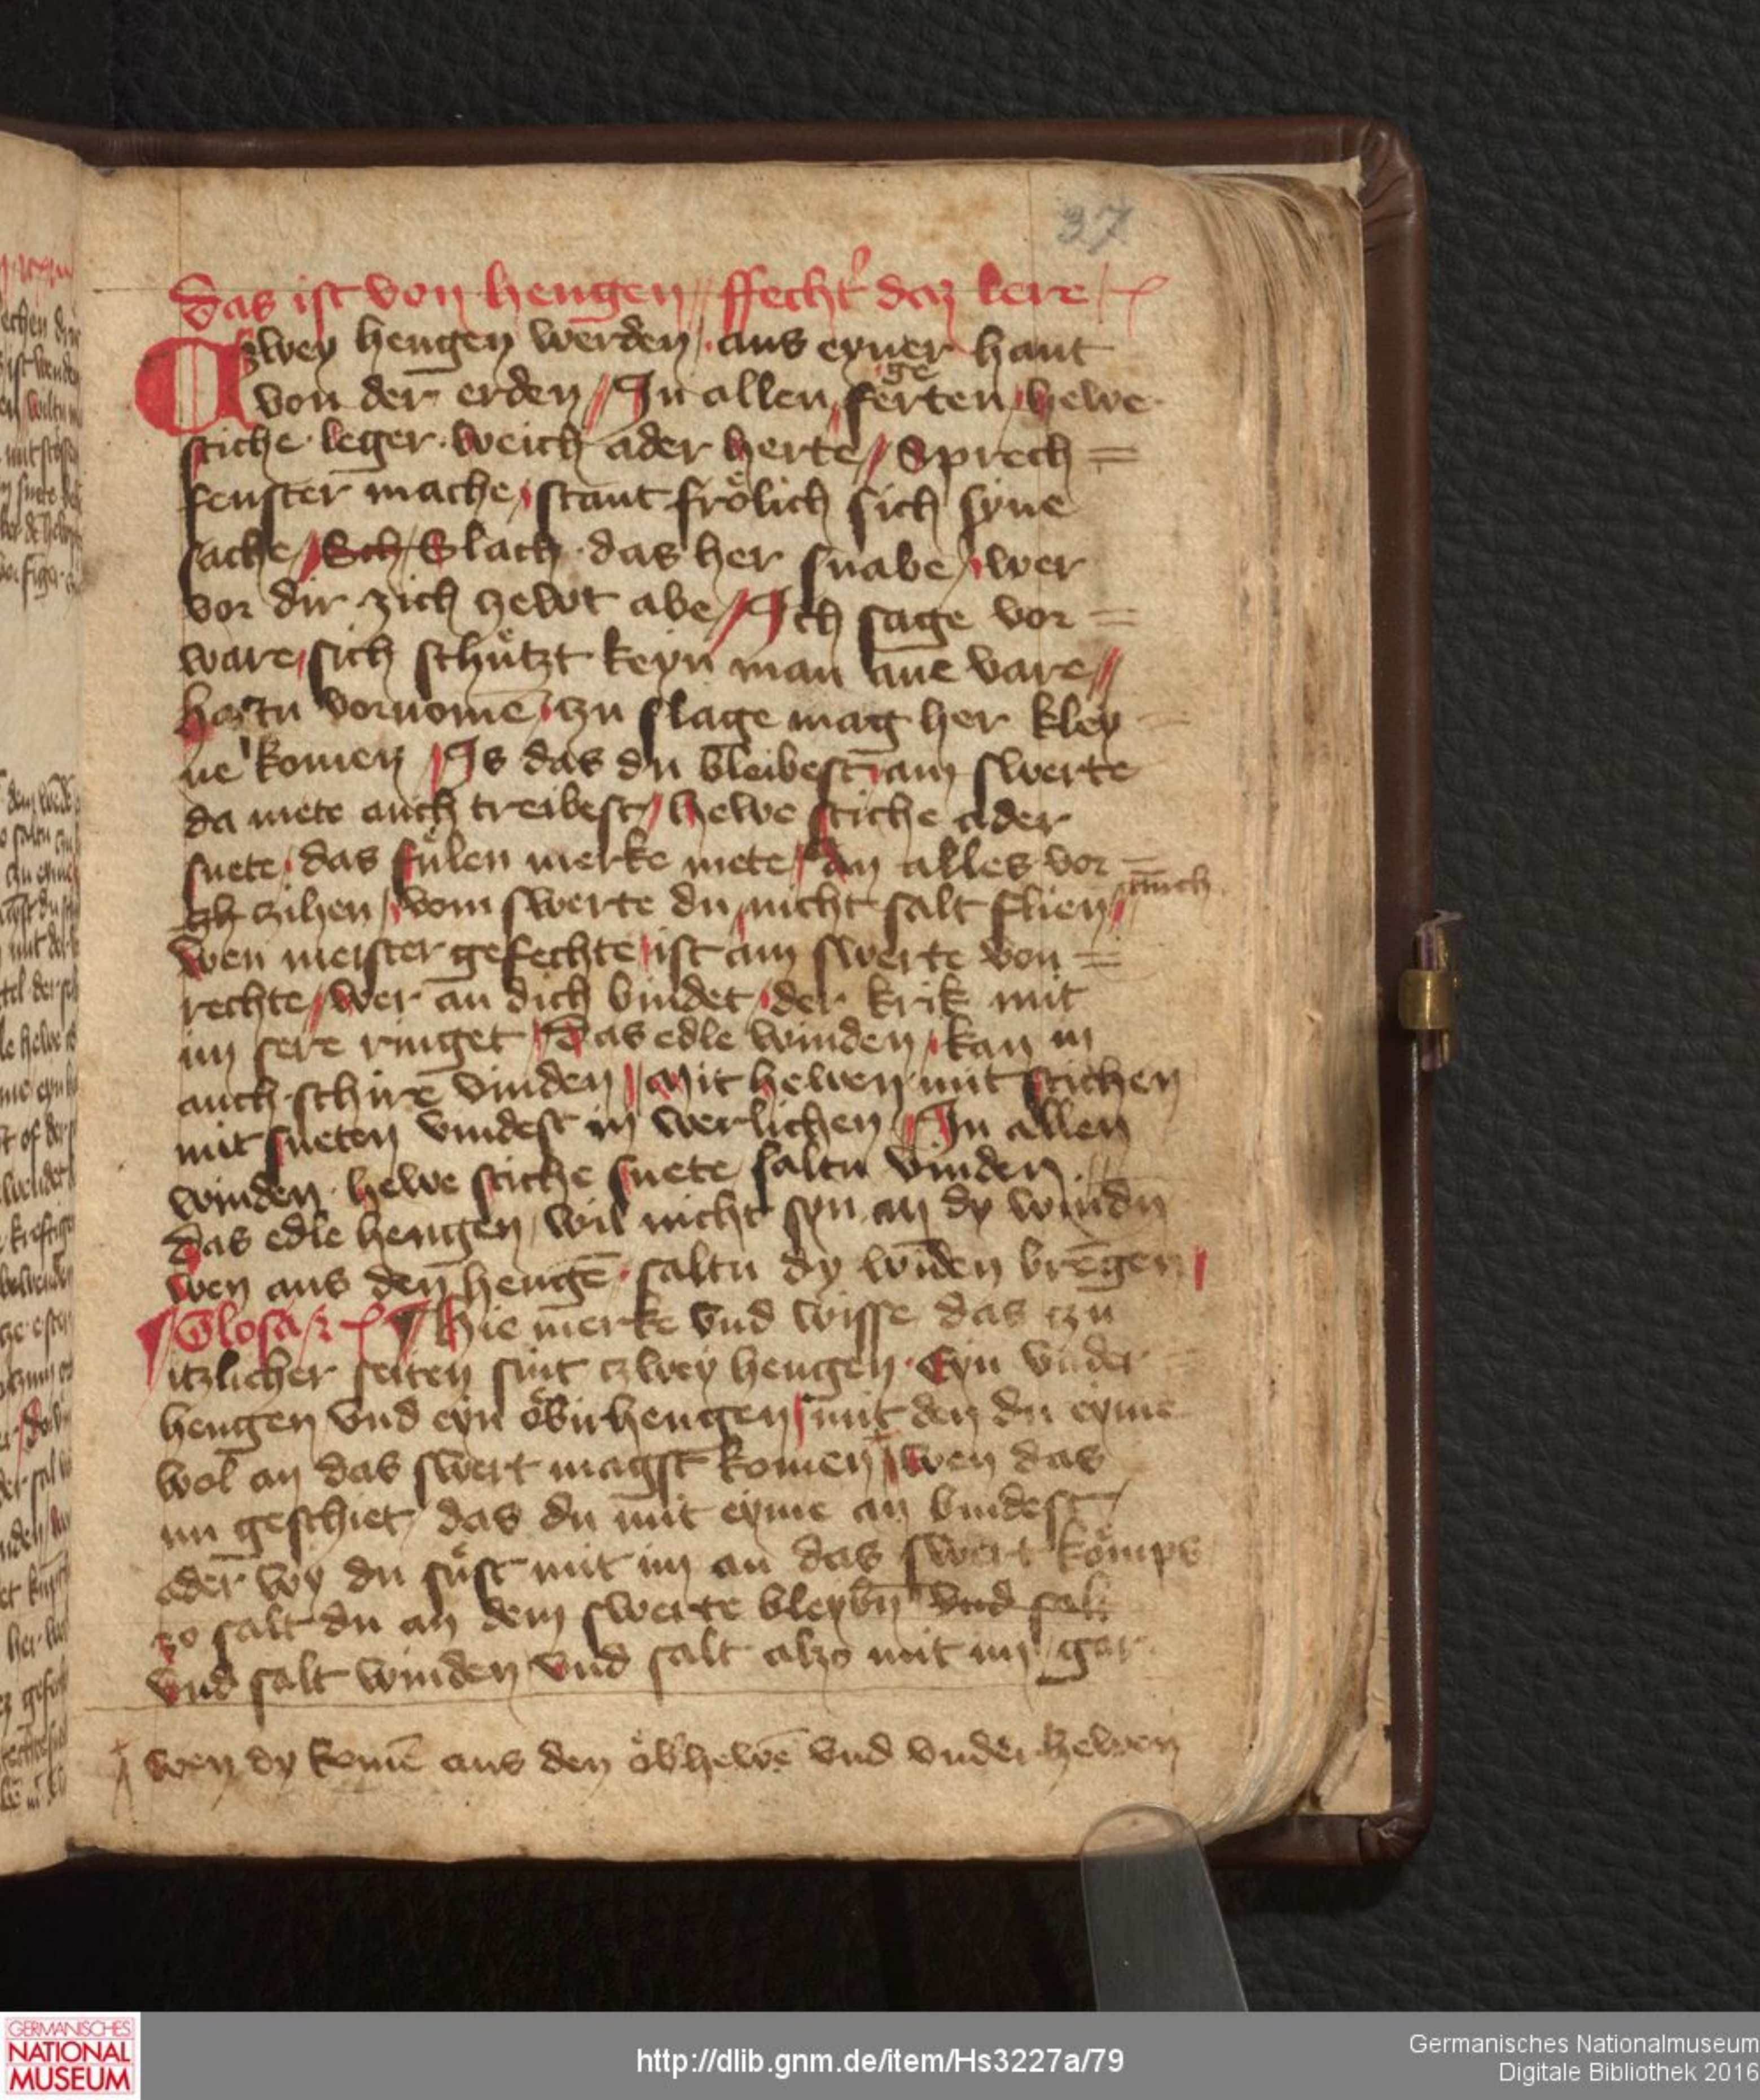 37
Das ist von hengen // ffechtʾ daz lere /
Czwey hengen werden / aus eyner hant
von der erden // In allen geferten / hewe
stiche leger weich ader herte // Sprech =
fenster mache / stant frölich sich syne
sache // Sch / Slach das her snabe / wer
vor dir zich zewt abe // Ich sage vor =
ware / sich schützt keyn man ane vare //
hastu vornomē / zu slage mag her kley =
ne komen // Is das du bleibest / am swerte
da mete auch treibest / hewe stiche ader
snete / das fülen merke mete / an alles vor =
zh zihen / vom swerte du nicht salt flien / auch
wen meister gefechte / ist am swerte von =
rechte / wer an dich bindet / der krik mit
im sere ringet / Das edle winden / kan in
auch schire vinden / Mit hewen mit stichen
mit sneten vindest in werlichen / In allen
winden hewe stiche snete saltu vinden //
Das edle hengen / wil nicht syn an dy windn
wen aus den hengē saltu dy winden brēgen /
Glosa / Hie merke vnd wisse das czu
itzlicher seiten sint czwey hengen Eyn vnder =
hengen vnd eyn öbirhengen / mit den du eyme
wol an das swert magst komen / wen das
nu geschiet / das du mit eyme an bindest /
ader wy du süst mit im an das swert kömps
zo salt du an dem swerte bleybn vnd salt
vnd salt winden vnd salt alzo mit im / gar
wen dy komē aus den öb'hewē vnd vnder hewen
GERMANISCHES
NATIONAL
MUSEUM
http://dlib.gnm.de/item/Hs3227a/79
Germanisches Nationalmuseum
Digitale Bibliothek 2016